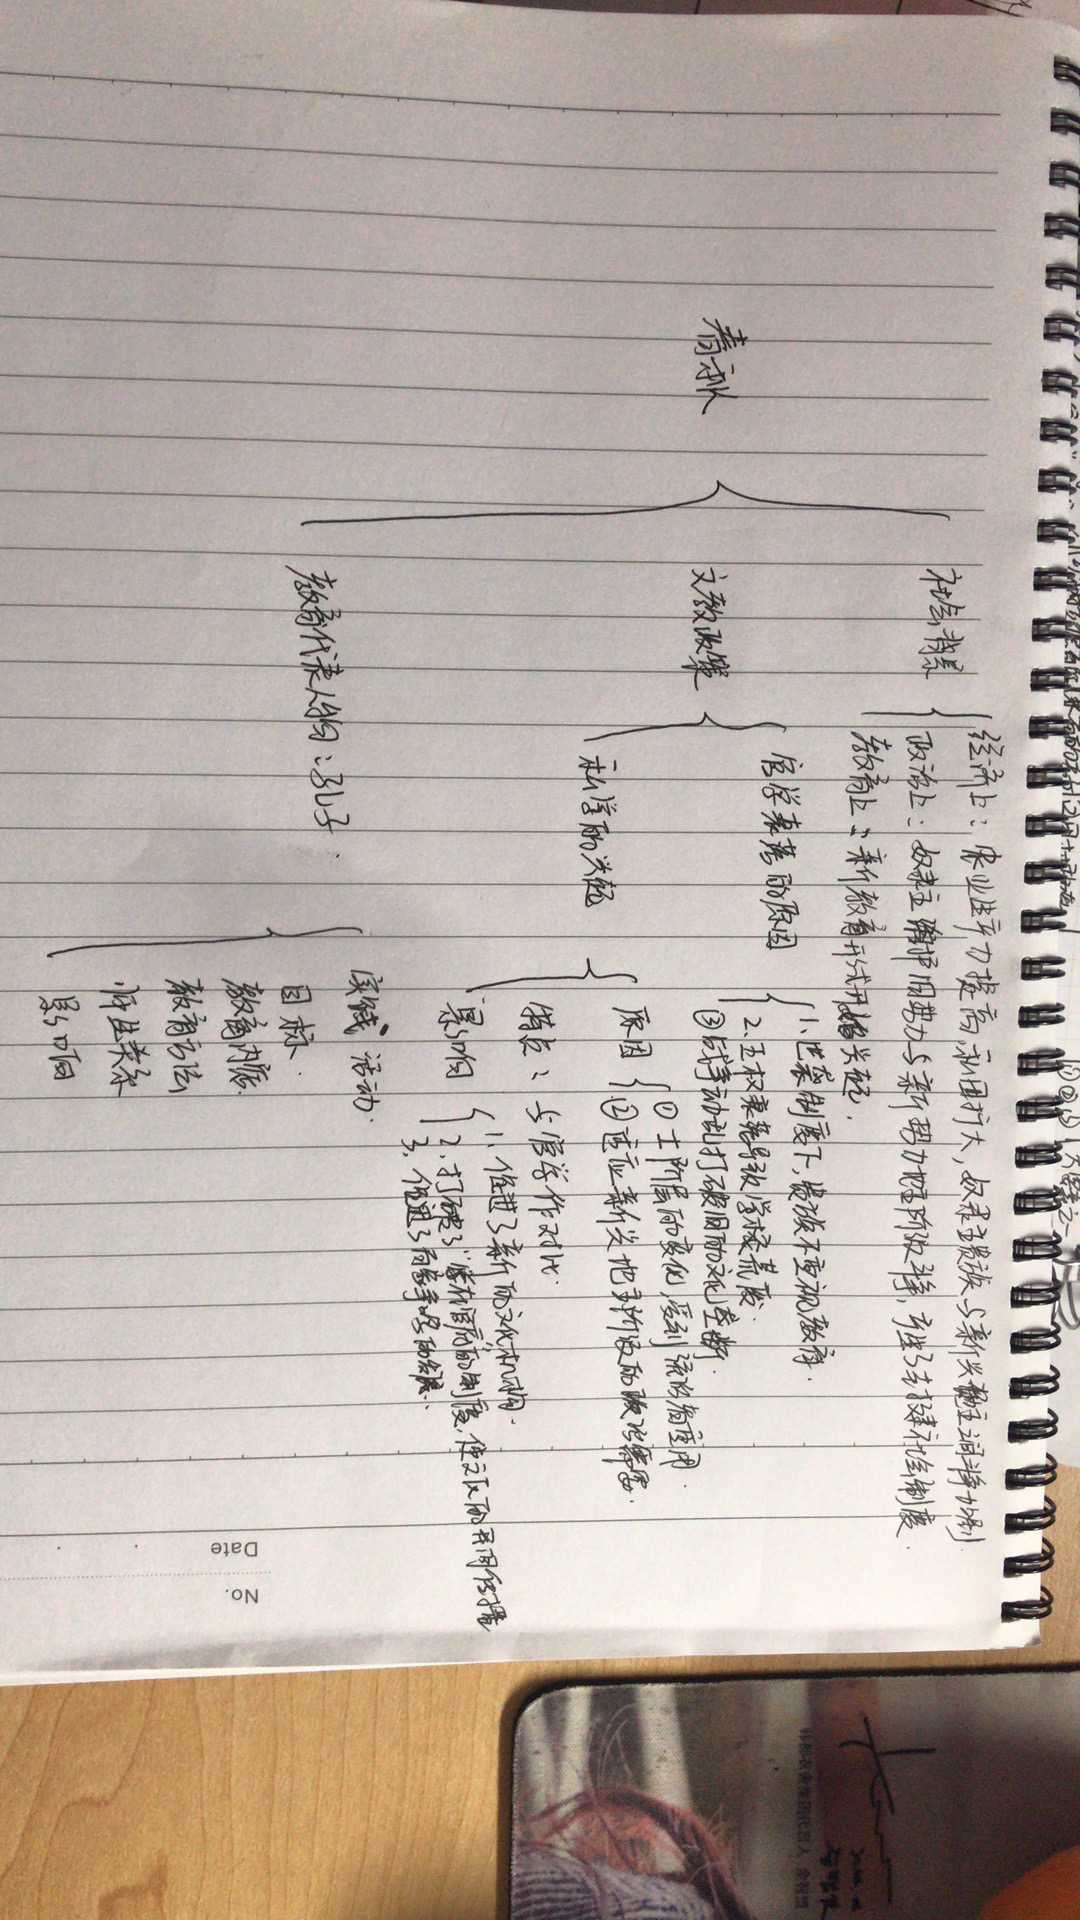 春秋
社会背景
经济上：农业生产力提高，利用扩大，奴隶主贵族与新兴地主间斗争加剧
政治上：奴隶主维护旧势力与新势力地主阶级斗争，产生了封建社会制度
教育上：新教育形式开始兴起.
文教政策
官学衰落的原因
1.世袭制度下,贵族不重视教育.
2.王权衰落导致学校荒废.
③战争动乱打破旧的文化垄断
私学的兴起
原因
①士阶层的变化,受到统治者重用
②适应新兴地主阶级的政治需要.
特点：与官学作对比.
影响
1.促进了新的文化机构.
2.打破了“学在官府”的制度,使文化的共同传播
3.促进了百家争鸣的发展.
教育代表人物：孔子
实践活动.
目标.
教育内容.
教育方法
师生关系
影响
Date
No.